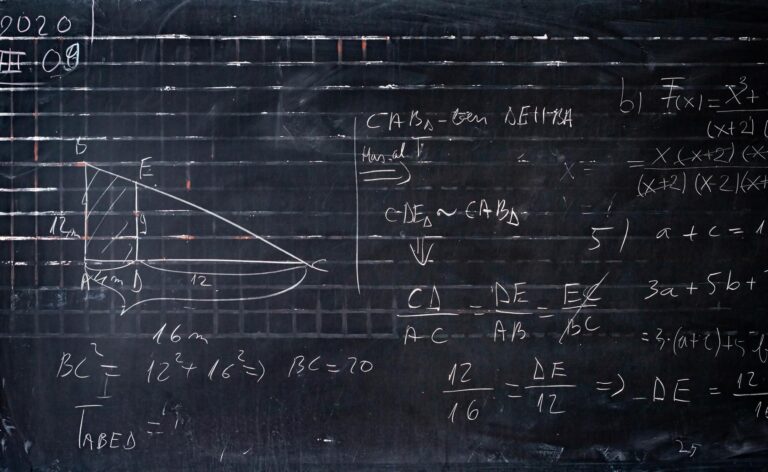 2020
III 09
B
E
12m
9
A 4m D 12 C
16 m
BC² = 12² + 16² => BC = 20
T ABED =
CAB△ - DE || BA
=>
CDE△ ~ CAB△
⇓
CD/AC = DE/AB = EC/BC
12/16 = DE/12 => DE = 12·
b) F(x) = x³ +
(x+2) (
= x·(x+2) (x-
(x+2)(x-2)(x+
x =
5) a + c = 1
3a + 5b +
= 3·(a+c)+5
25